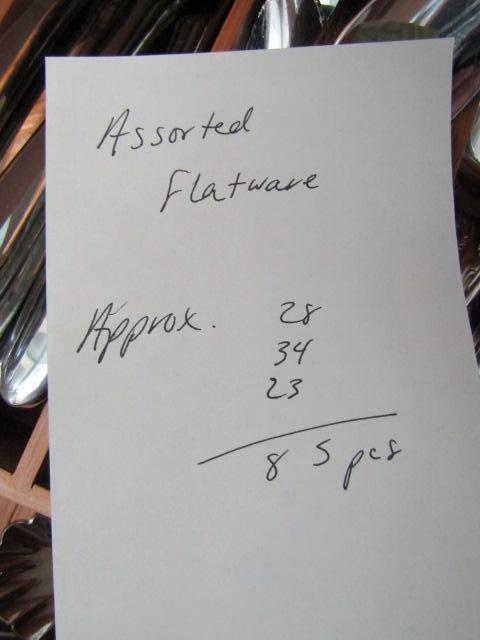 Assorted
Flatware
Approx. 28
34
23
85 pcs